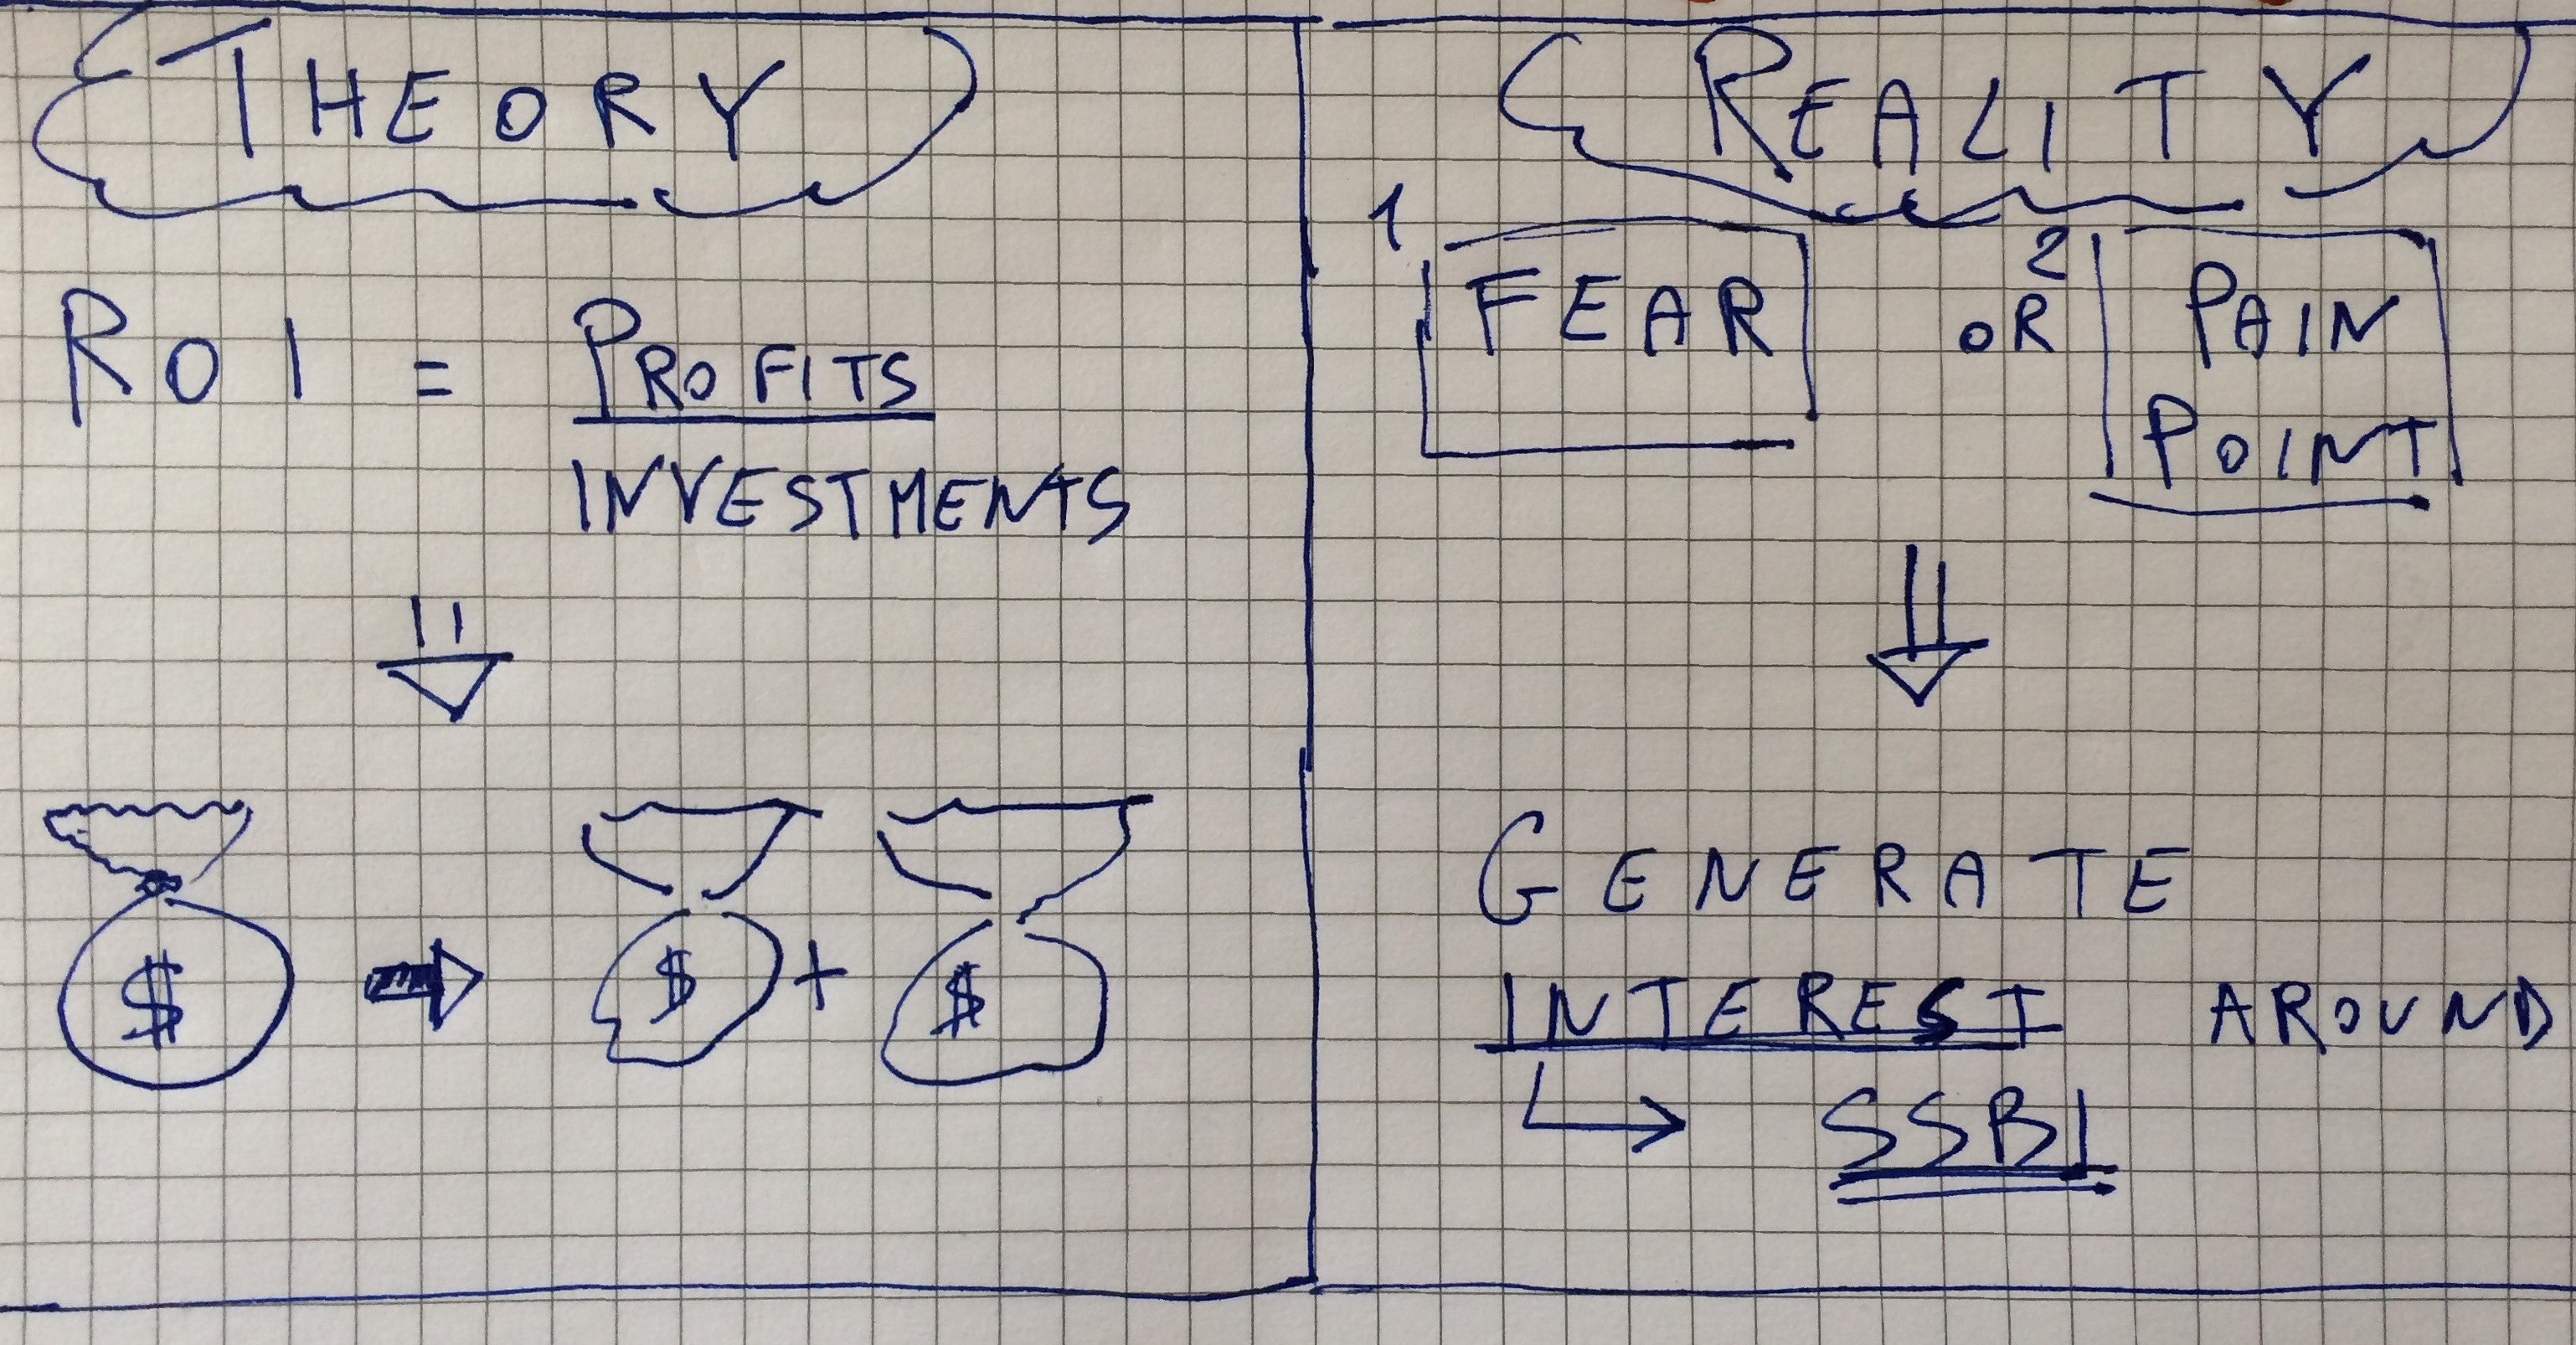 THEORY
ROI = PROFITS
INVESTMENTS
$ $ + $
REALITY
1 FEAR OR 2 PAIN
POINT
GENERATE
INTEREST AROUND
SSBI